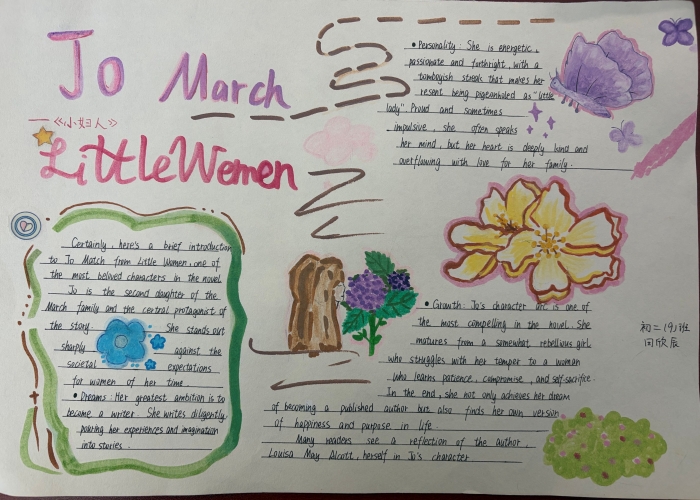 Jo March
—《小妇人》
Little Women
Certainly, here's a brief introduction
to Jo Match from Little Women, one of
the most beloved characters in the novel.
Jo is the second daughter of the
March family and the central protagonist of
the story. She stands out
sharply against the
societal expectations
for women of her time.
• Dreams: Her greatest ambition is to
become a writer. She writes diligently,
pouring her experiences and imagination
into stories.
• Personality: She is energetic,
passionate and forthright, with a
tomboyish streak that makes her
resent being pigeonholed as "little
lady". Proud and sometimes
impulsive, she often speaks
her mind, but her heart is deeply kind and
overflowing with love for her family.
• Growth: Jo's character arc is one of
the most compelling in the novel. She
matures from a somewhat rebellious girl
who struggles with her temper to a woman
who learns patience, compromise, and self-sacrifice.
In the end, she not only achieves her dream
of becoming a published author but also finds her own version
of happiness and purpose in life.
Many readers see a reflection of the author,
Louisa May Alcott, herself in Jo's character
初二(9)班
闫欣辰